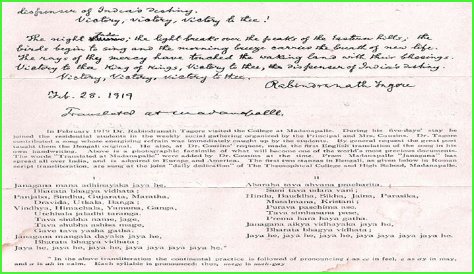 dispenser of India's destiny.
Victory, Victory, Victory to thee!
The night fades; the light breaks over the peaks of the Eastern hills; the
birds begin to sing and the morning breeze carries the breath of new life.
The rays of thy mercy have touched the waking land with their blessings.
Victory to thee King of Kings, Victory to thee, the dispenser of India's destiny.
Victory, Victory, Victory to thee.
Rabindranath Tagore
Feb. 28. 1919
Translated at Madanapalle
In February 1919 Dr. Rabindranath Tagore visited the College at Madanapalle. During his five-days' stay he
joined the residential students in the weekly social gathering organised by the Principal and Mrs. Cousins. Dr. Tagore
contributed a song whose energising refrain was immediately caught up by the students. By general request the great poet
taught them the Bengali original. He also, at Dr. Cousins' request, made the first English translation of the song in his
own handwriting, a photographic facsimile of what will become one of the world's most precious documents.
The words "Translated at Madanapalle" were added by Dr. Cousins at the time. From Madanapalle "Janagana" has
spread all over India, and is admired in Europe and America. The first two stanzas in Bengali, as given below in Roman
script transliteration, are sung as the joint "daily dedication" of The Theosophical College and High School, Madanapalle.
I
Janagana mana adhinayaka jaya he,
Bharata bhagya vidhata;
Panjaba, Sindhu, Gujarata, Maratha,
Dravida, Utkala, Banga;
Vindhya, Himachala, Yamuna, Ganga,
Uchhala jaladhi taranga.
Tava shubha name, jage,
Tava shubha ashisha mage,
Gave tava yasha gatha.
Janagana mangala dayaka jaya he,
Bharata bhagya vidhata;
Jaya he, jaya he, jaya he, jaya jaya jaya jaya he.
II
Aharaha tava ahvana pracharita,
Suni tava udara vani;
Hindu, Bauddha, Sikha, Jaina, Parasika,
Musalmana, Kristani;
Purava paschima ase,
Tava simhasana pase,
Prema hara hay a gatha.
Janagana aikya vidhayaka jaya he,
Bharata bhagya vidhata;
Jaya he, jaya he, jaya he, jaya jaya jaya jaya he.
In the above transliteration the continental practice is followed of pronouncing i as ee in feel, e as ey in may,
and ai as in calm. Each syllable is pronounced thus,